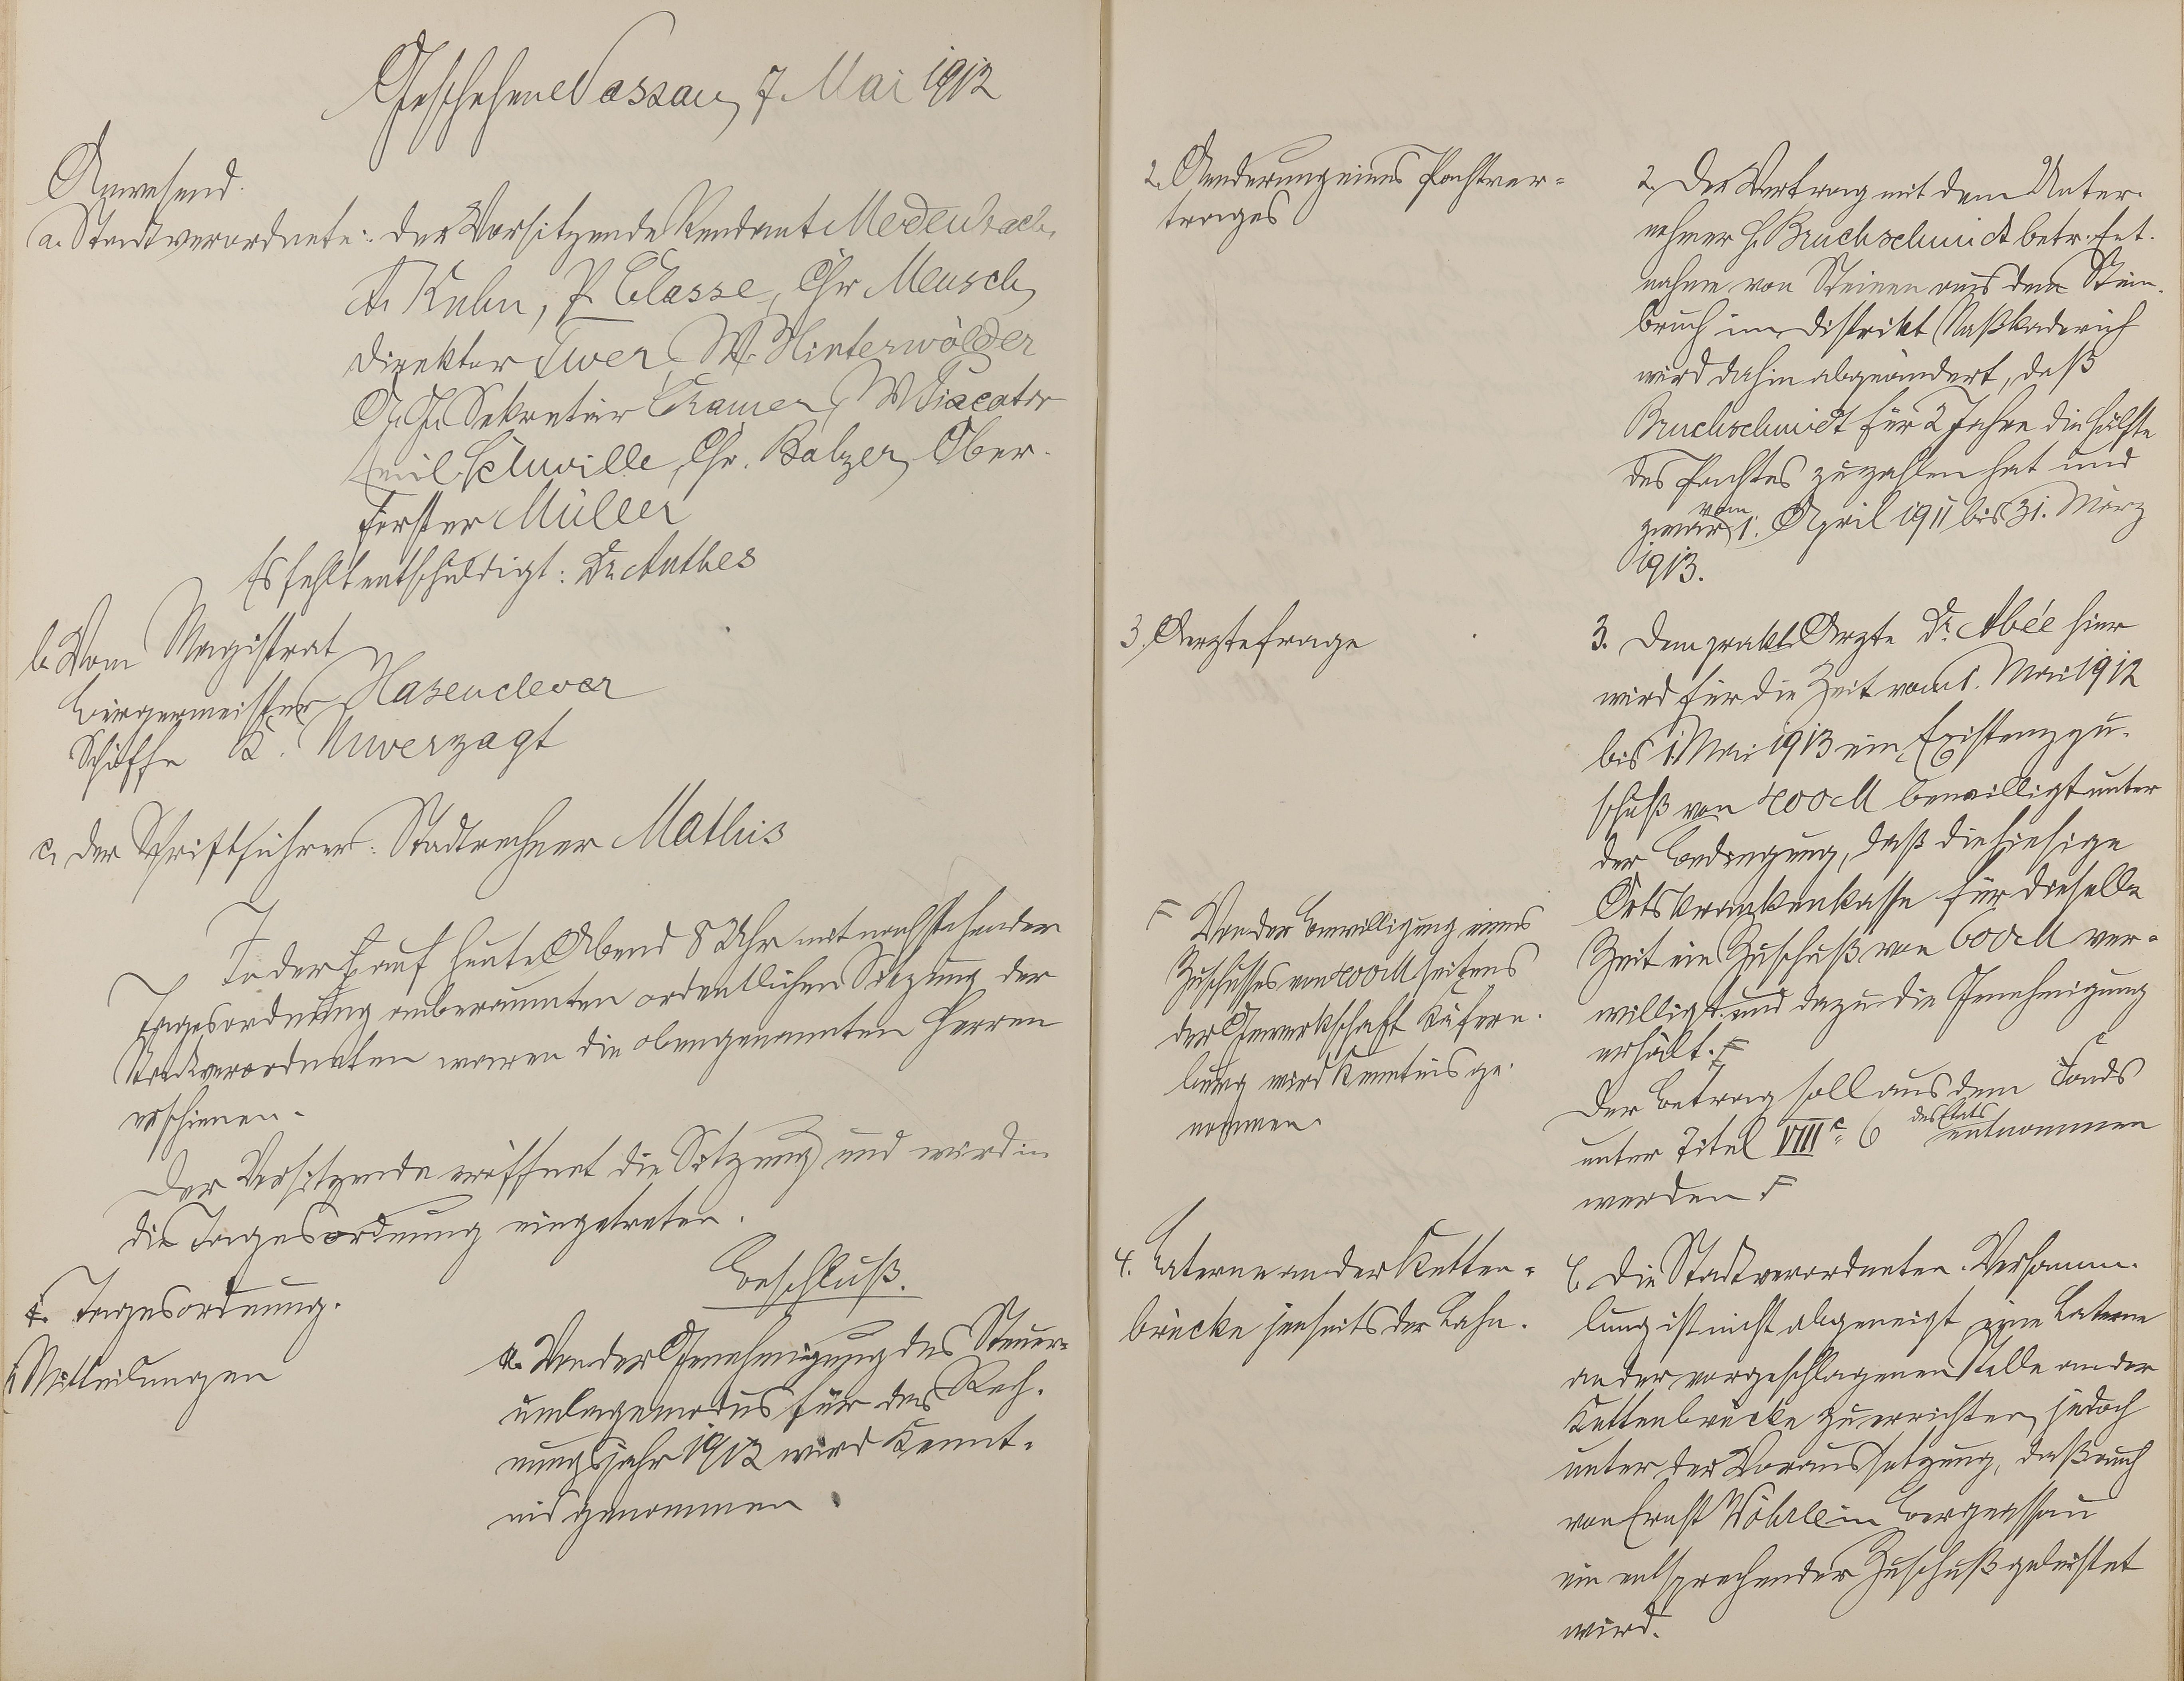 Geschehen Nassau, 7. Mai 1912
Anwesend.
a. Stadtverordnete: der Vorsitzende Rendant Medenbach,
A. Kuhn, P. Classe, Chr Meusch,
Direktor Twer, W. Hinterwälder
A. G. Sekretär Cramer, W Piscator
Emil Schuville, Chr. Balzer, Ober-
förster Müller
Es fehlt entschuldigt: Dr. Anthes
b. Vom Magistrat
Bürgermeister Hasenclever
Schöffe K. Unverzagt
c. der Schriftführer: Stadtrechner Mathis
In der auf heute Abend 8 Uhr mit nachstehender
Tagesordnung anberaumten ordentlichen Sitzung der
Stadtverordneten waren die obengenannten Herren
erschienen.
Der Vorsitzende eröffnet die Sitzung und wird in
die Tagesordnung eingetreten.
Beschluß.
Tagesordnung.
1. Mitteilungen
Von der Genehmigung des Steuer-
umlagemodus für das Rech-
nungsjahr 1912 wird Kennt-
nis genommen
2. Aenderung eines Pachtver-
trages
2. Der Vertrag mit dem Unter-
nehmer H. Bruchschmidt betr. Ent-
nahme von Steinen aus dem Stein-
bruch im Distrikt Naßkaderich
wird dahin abgeändert, daß
Bruchschmidt für 2 Jahre die Hälfte
des Pachtes zu zahlen hat und
zwar vom 1. April 1911 bis 31. März
1913.
3. Aerztefrage
3. Dem prakt. Arzte Dr. Abée hier
wird für die Zeit vom 1. Mai 1912
bis 1. Mai 1913 ein Existenzzu-
schuß von 400 M bewilligt unter
der Bedingung, daß die hiesige
Ortskrankenkasse für dieselbe
Zeit ein Zuschuß von 600 M ver-
willigt und dazu die Genehmigung
erhält. F
Der Betrag soll aus dem Fonds
unter Titel VIII c 6 des Etats entnommen
werden F
F Von der Bewilligung eines
Zuschusses von 400 M seitens
der Gewerkschaft Käfern-
burg wird Kenntnis ge-
nommen.
4. Laterne an der Ketten-
brücke jenseits der Lahn.
4. Die Stadtverordneten-Versamm-
lung ist nicht abgeneigt eine Laterne
an der vorgeschlagenen Stelle an der
Kettenbrücke zu errichten, jedoch
unter der Voraussetzung, daß auch
von Ernst Wöhrle in Bergnassau
ein entsprechender Zuschuß geleistet
wird.